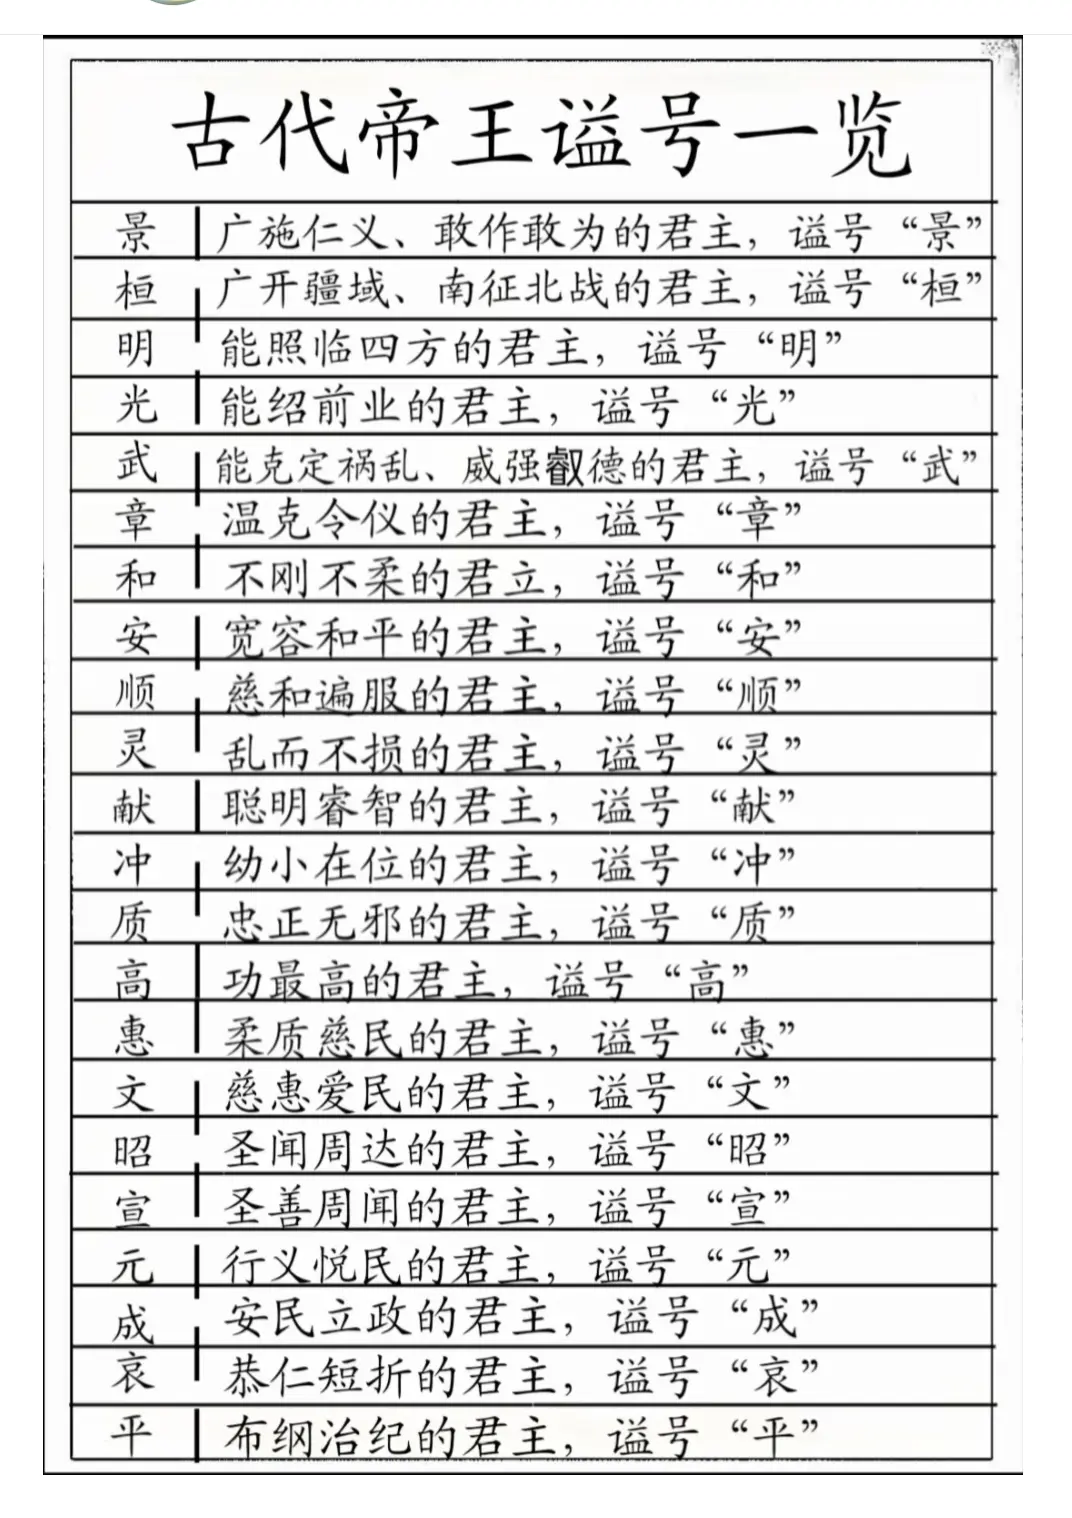 古代帝王谥号一览
景 广施仁义、敢作敢为的君主，谥号“景”
桓 广开疆域、南征北战的君主，谥号“桓”
明 能照临四方的君主，谥号“明”
光 能绍前业的君主，谥号“光”
武 能克定祸乱、威强叡德的君主，谥号“武”
章 温克令仪的君主，谥号“章”
和 不刚不柔的君立，谥号“和”
安 宽容和平的君主，谥号“安”
顺 慈和遍服的君主，谥号“顺”
灵 乱而不损的君主，谥号“灵”
献 聪明睿智的君主，谥号“献”
冲 幼小在位的君主，谥号“冲”
质 忠正无邪的君主，谥号“质”
高 功最高的君主，谥号“高”
惠 柔质慈民的君主，谥号“惠”
文 慈惠爱民的君主，谥号“文”
昭 圣闻周达的君主，谥号“昭”
宣 圣善周闻的君主，谥号“宣”
元 行义悦民的君主，谥号“元”
成 安民立政的君主，谥号“成”
哀 恭仁短折的君主，谥号“哀”
平 布纲治纪的君主，谥号“平”